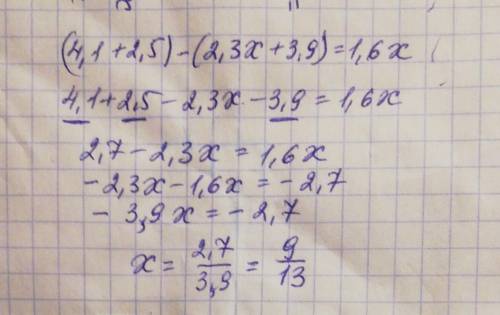 (4,1+2,5)-(2,3x+3,9)=1,6x
4,1+2,5-2,3x-3,9=1,6x
2,7-2,3x=1,6x
-2,3x-1,6x=-2,7
-3,9x=-2,7
x=2,7/3,9=9/13